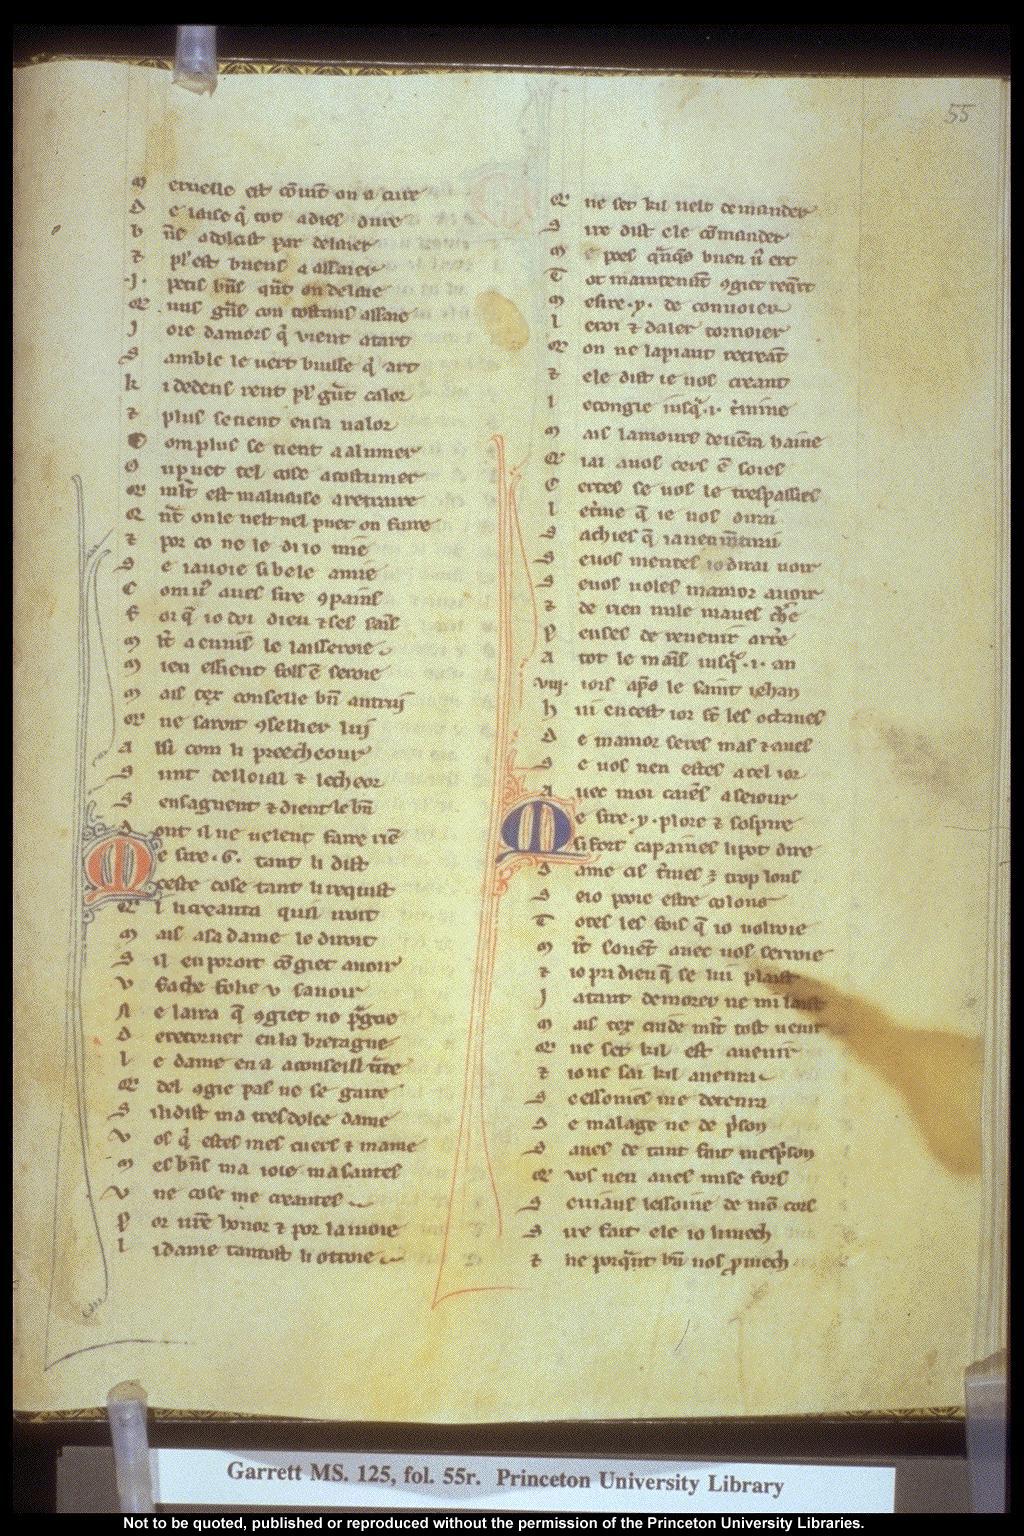 55
M eruelle est co᷒uit on a cure
D e laise q̃ tot adies dure
b n̄s adolcist par delaier
⁊ pl᷒ est buens a assaier
.J. petis bn̄s qn̄t on delaie
Q uns gn̄s con tostans assaie
J oie damors q̃ vient atart
S amble le vert busse q̃ art
k i dedens rent pl᷒ gn̄t calor
⁊ plus se tient en sa ualor
C om plus se tient a alumer
O n puet tel cose acostumer
Q mlt̄ est maluaise a retraire
Q n̄t on le uelt nel puet on faire
⁊ por co ne le di io mie
S e iauoie si bele amie
C om uꝰ aues sire ꝯpains
F oi q̃ io doi dieu ⁊ ses sains
M lt̄ a enuis le laisseroie
M ien essient fols ē seroie
M ais tex conselle bn̄ autrui
Q ne saroit ꝯsellier lui
A lsi com li preecheour
S unt desloial ⁊ lecheor
S ensaguent ⁊ dient le bn̄
D ont il ne uelent faire riē
M e sire .G. tant li dist
Ceste cose tant li requist
Q l li creanta quil iroit
M ais a sa dame le diroit
S il en poroit cōgiet auoir
V face folie v sauoir
N e laira q̃ ꝯgiet no prēgne
D e retorner en la bretagne
L e dame en a a conseill traite
Q del ꝯgie pas ne se gaite
S i li dist ma tres dolce dame
V os q̃ estes mes cuers ⁊ mame
M es bn̄s ma ioie ma santes
V ne cose me creantes
P or urē honor ⁊ por la moie
L i dame tantost li otroie
Q ne set kil uelt demander
S ire dist ele cōmander
M e poes qn̄q̃s buen ii ert
T ot maintenāt ꝯgiet reqrt
M esire .y. de conuoier
L e roi ⁊ daler tornoier
Q on ne lapiaut recreāt
⁊ ele dist ie uos creant
L e congie iusq̃ .i. trmine
M ais lamours deuēra haine
Q iai a uos cers ē soies
C ertes se uos le trespassies
L e trme q̃ ie uos dirai
S achies q̃ ia nen mentirai
S e uos mentes io dirai uoir
S e uos uoles mamor auoir
⁊ de rien nule maues chre
P enses de reuenir arre
A tot le mais iusq̃ .i. an
.viij. iors apꝰ le saint iehan
H ui en cest ior st les octaues
D e mamor seres mas ⁊ aues
S e uos nen estes a cel ior
A uec moi caiens a seiour
M e sire .y. plore ⁊ sospire
Si fort ca paines li pot dire
D ame cis trmes ꝫ trop lons
S e io pooie estre colons
T otes les fois q̃ io uolroie
M lt̄ souēt auec uos seroie
⁊ io pri dieu q̃ se lui plaist
J a tant demorer ne mi laist
M ais tex cuide mlt̄ tost uenir
Q ne set kil est auenir
⁊ io ne sai kil auenra
S e essonies me detenra
D e malage ne de prison
S aues de tant fait mesprison
Q uos nen aues mise fors
S euians lessoine de mō cors
S ire fait ele io li mech
⁊ ne porqn̄t bn̄ uos ꝓmech
Garrett MS. 125, fol. 55r. Princeton University Library
Not to be quoted, published or reproduced without the permission of the Princeton University Libraries.